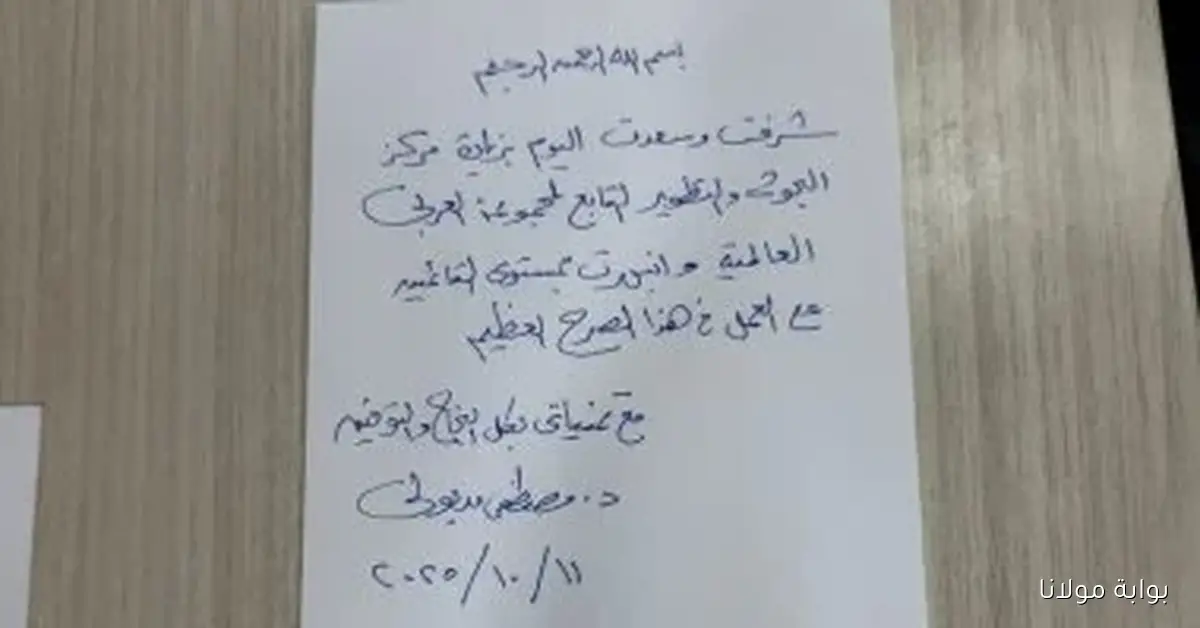 بسم الله الرحمن الرحيم
شرفت وسعدت اليوم بزيارة مركز
البحوث والتطوير التابع لمجموعة العربى
العالمية وانبهرت بمستوى القائمين
على العمل فى هذا الصرح العظيم
مع تمنياتى بكل النجاح والتوفيق
د. مصطفى مدبولى
٢٠٢٥/١٠/١١
بوابة مولانا